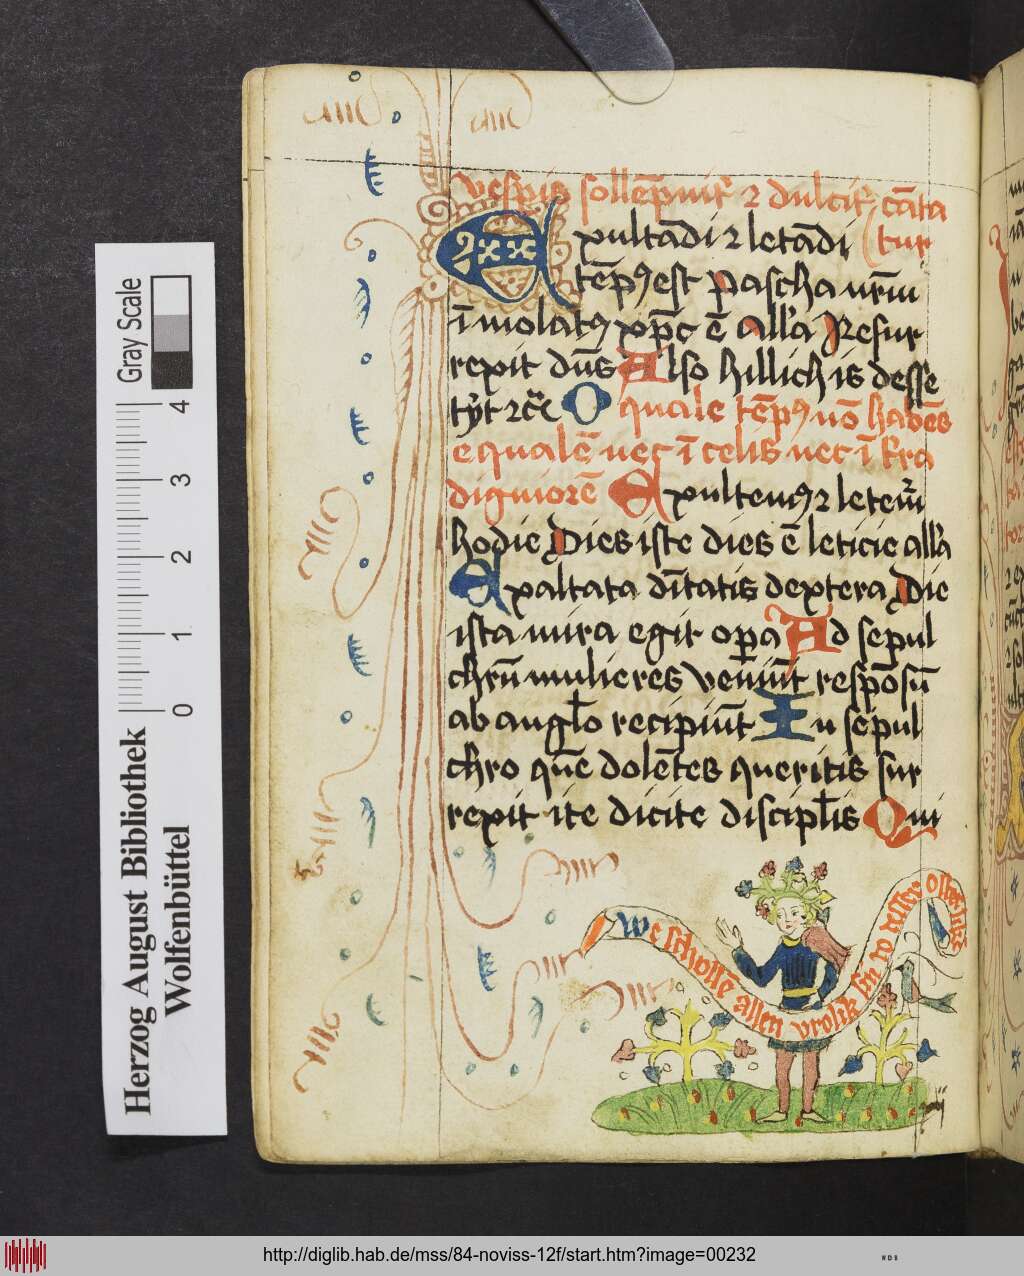 vespis sollēpnit᷑ ⁊ dulcit᷑ cāta
Expultādi ⁊ letādi (tur
tēpꝰ est pascha nr̄m
īmolatꝰ xp̄c ē all'a Resur
rexit dn̄s Also hillich is desse
tÿt ⁊cͬ O quale tēpꝰ nō habēs
equalē nec ī celis nec ī t'ra
digniorē Expultemꝰ ⁊ letem̄
hodie Dies iste dies ē leticie all'a
Expaltata d̄itatis dextera die
ista mira egit oꝑa Ad sepul
chrū mulieres veniūt respōsū
ab angl̄o recipiūt In sepul
chro quē dolētes queritis sur
rexit ite dicite discipl̄is Qui
We scholle allen vrolik sin to desser oster
Herzog August Bibliothek
Wolfenbüttel
Gray Scale
0 1 2 3 4
http://diglib.hab.de/mss/84-noviss-12f/start.htm?image=00232